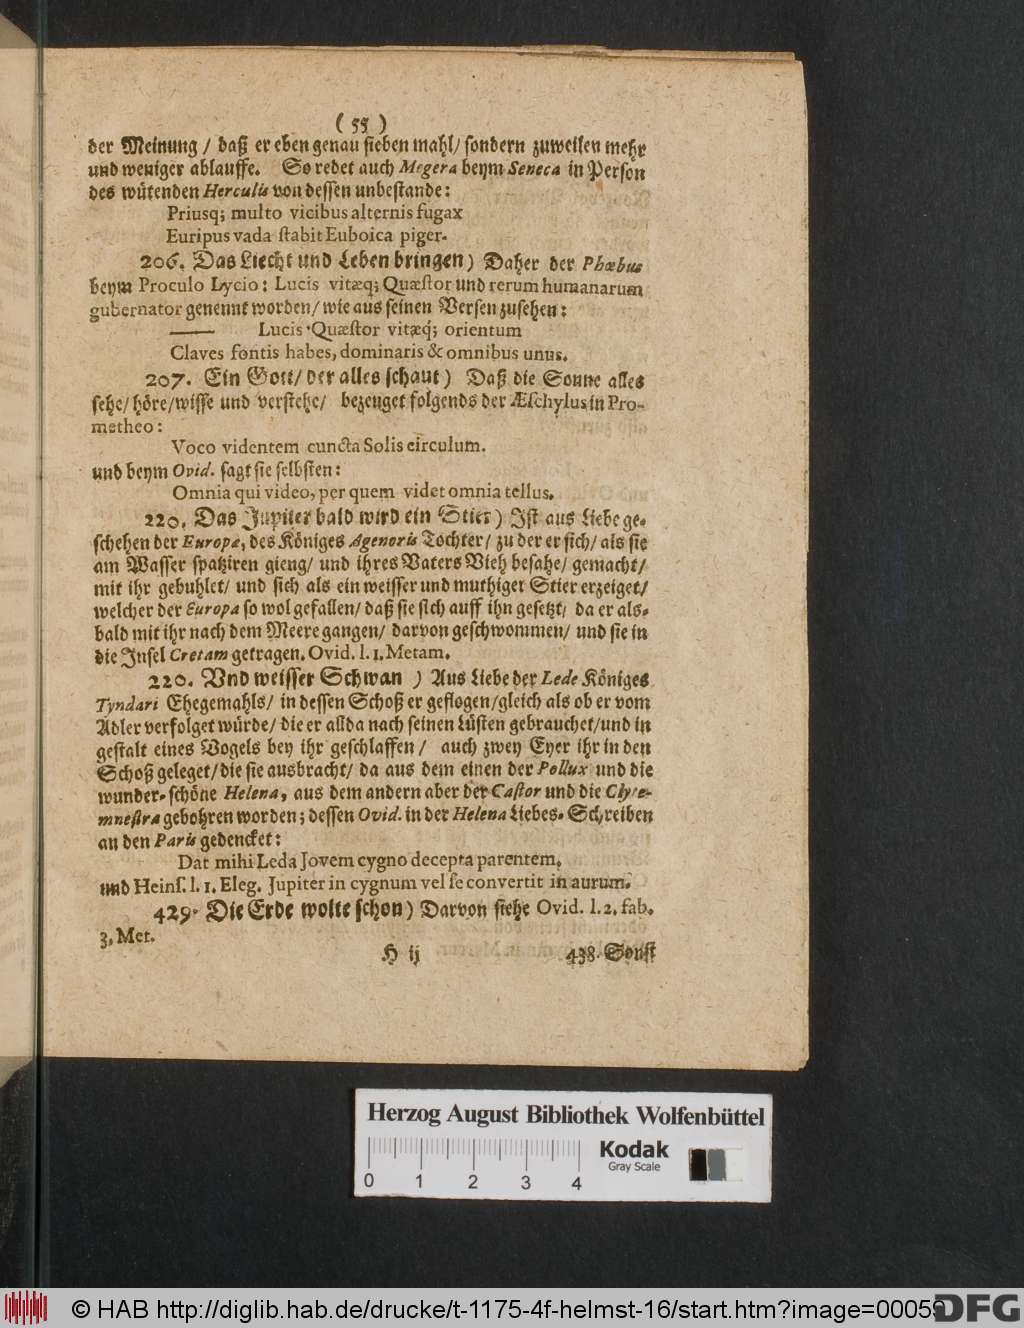 ( 55 )
der Meinung / daß er eben genau sieben mahl/ sondern zuweilen mehr
und weniger ablauffe. So redet auch Megera beym Seneca in Person
des wütenden Herculis von dessen unbestande:
Priusq; multo vicibus alternis fugax
Euripus vada stabit Euboica piger.
206. Das Liecht und Leben bringen) Daher der Phœbus
beym Proculo Lycio: Lucis vitæq; Quæstor und rerum humanarum
gubernator genennt worden/ wie aus seinen Versen zusehen:
—— Lucis Quæstor vitæq; orientum
Claves fontis habes, dominaris & omnibus unus.
207. Ein Gott/ der alles schaut) Daß die Sonne alles
sehe/ höre/ wisse und verstehe/ bezeuget folgends der Æschylus in Pro-
metheo:
Voco videntem cuncta Solis circulum.
und beym Ovid. sagt sie selbsten:
Omnia qui video, per quem videt omnia tellus.
220. Das Jupiter bald wird ein Stier) Jst aus Liebe ge-
schehen der Europæ, des Königes Agenoris Tochter/ zu der er sich/ als sie
am Wasser spatziren gieng/ und ihres Vaters Vieh besahe/ gemacht/
mit ihr gebuhlet/ und sich als ein weisser und muthiger Stier erzeiget/
welcher der Europa so wol gefallen/ daß sie sich auff ihn gesetzt/ da er als-
bald mit ihr nach dem Meere gangen/ darvon geschwommen/ und sie in
die Jnsel Cretam getragen. Ovid. l. 1. Metam.
220. Vnd weisser Schwan ) Aus Liebe der Lede Königes
Tyndari Ehegemahls/ in dessen Schoß er geflogen/ gleich als ob er vom
Adler verfolget würde/ die er allda nach seinen Lüsten gebrauchet/ und in
gestalt eines Vogels bey ihr geschlaffen/ auch zwey Eyer ihr in den
Schoß geleget/ die sie ausbracht/ da aus dem einen der Pollux und die
wunder-schöne Helena, aus dem andern aber der Castor und die Clyte-
mnestra gebohren worden; dessen Ovid. in der Helena Liebes-Schreiben
an den Paris gedencket:
Dat mihi Leda Jovem cygno decepta parentem.
und Heins. l. 1. Eleg. Jupiter in cygnum vel se convertit in aurum.
429. Die Erde wolte schon) Darvon siehe Ovid. l. 2. fab.
3. Met.
H ij 438. Sonst
Herzog August Bibliothek Wolfenbüttel
Kodak
Gray Scale
0 1 2 3 4
© HAB http://diglib.hab.de/drucke/t-1175-4f-helmst-16/start.htm?image=00059
DFG